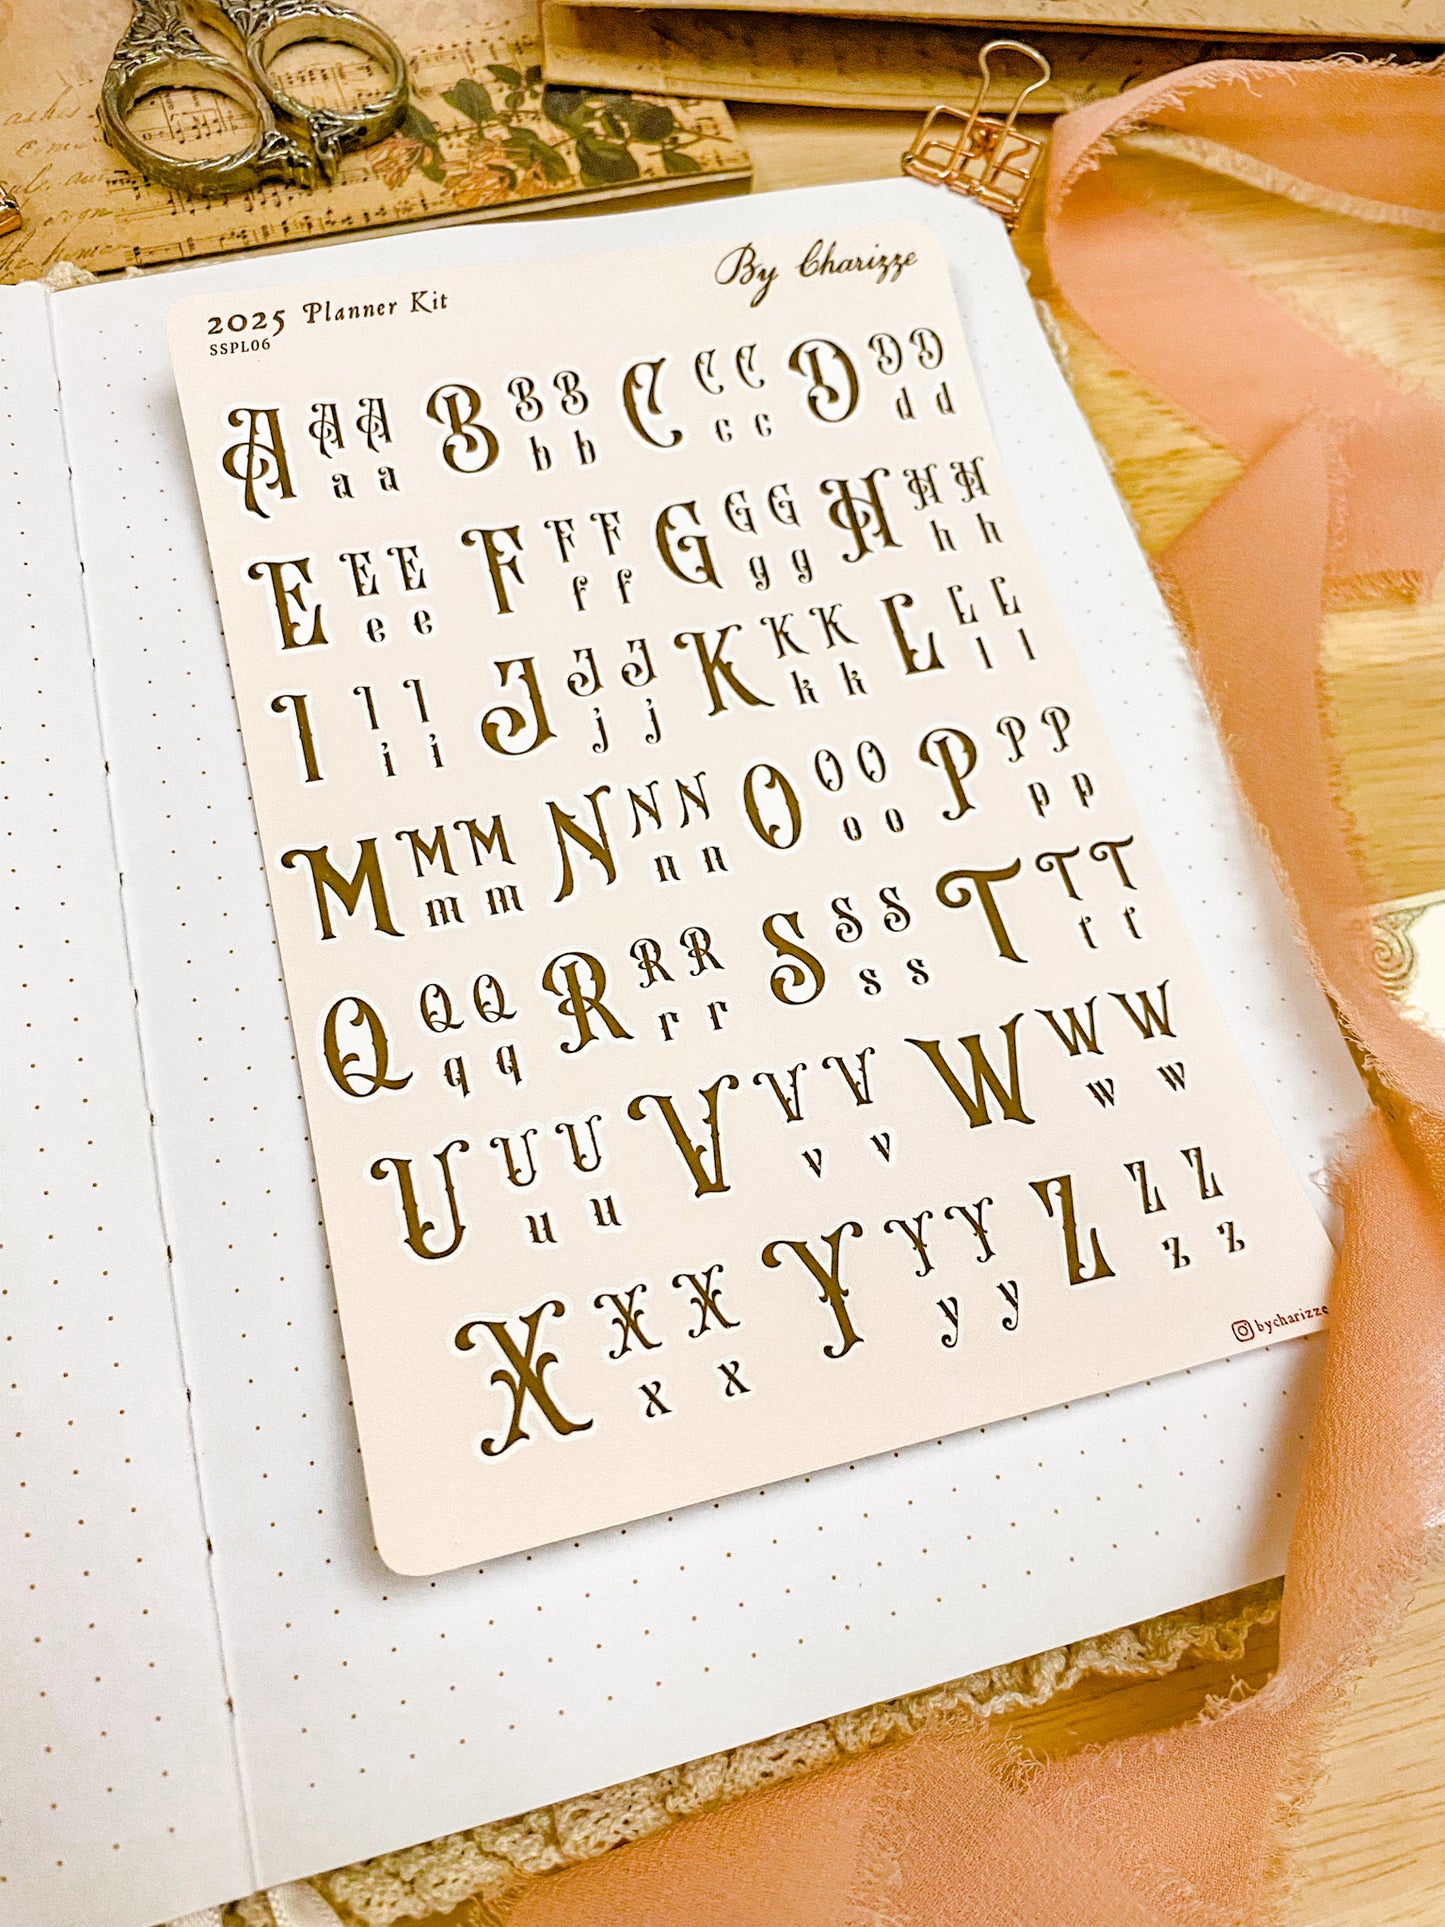 By Charizze
2025 Planner Kit
SSPL06
A A A B B B C C C D D D
a a b b c c d d
E E E F F F G G G H H H
e e f f g g h h
I I I J J J K K K L L L
i i j j k k l l
M M M N N N O O O P P P
m m n n o o p p
Q Q Q R R R S S S T T T
q q r r s s t t
U U U V V V W W W
u u v v w w
X X X Y Y Y Z Z Z
x x y y z z
bycharizze